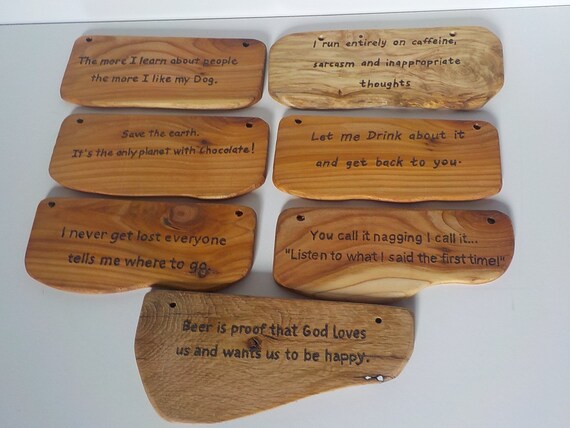 The more I learn about people
the more I like my Dog.
I run entirely on caffeine,
sarcasm and inappropriate
thoughts
Save the earth.
It's the only planet with Chocolate!
Let me Drink about it
and get back to you.
I never get lost everyone
tells me where to go.
You call it nagging I call it...
"Listen to what I said the first time!"
Beer is proof that God loves
us and wants us to be happy.